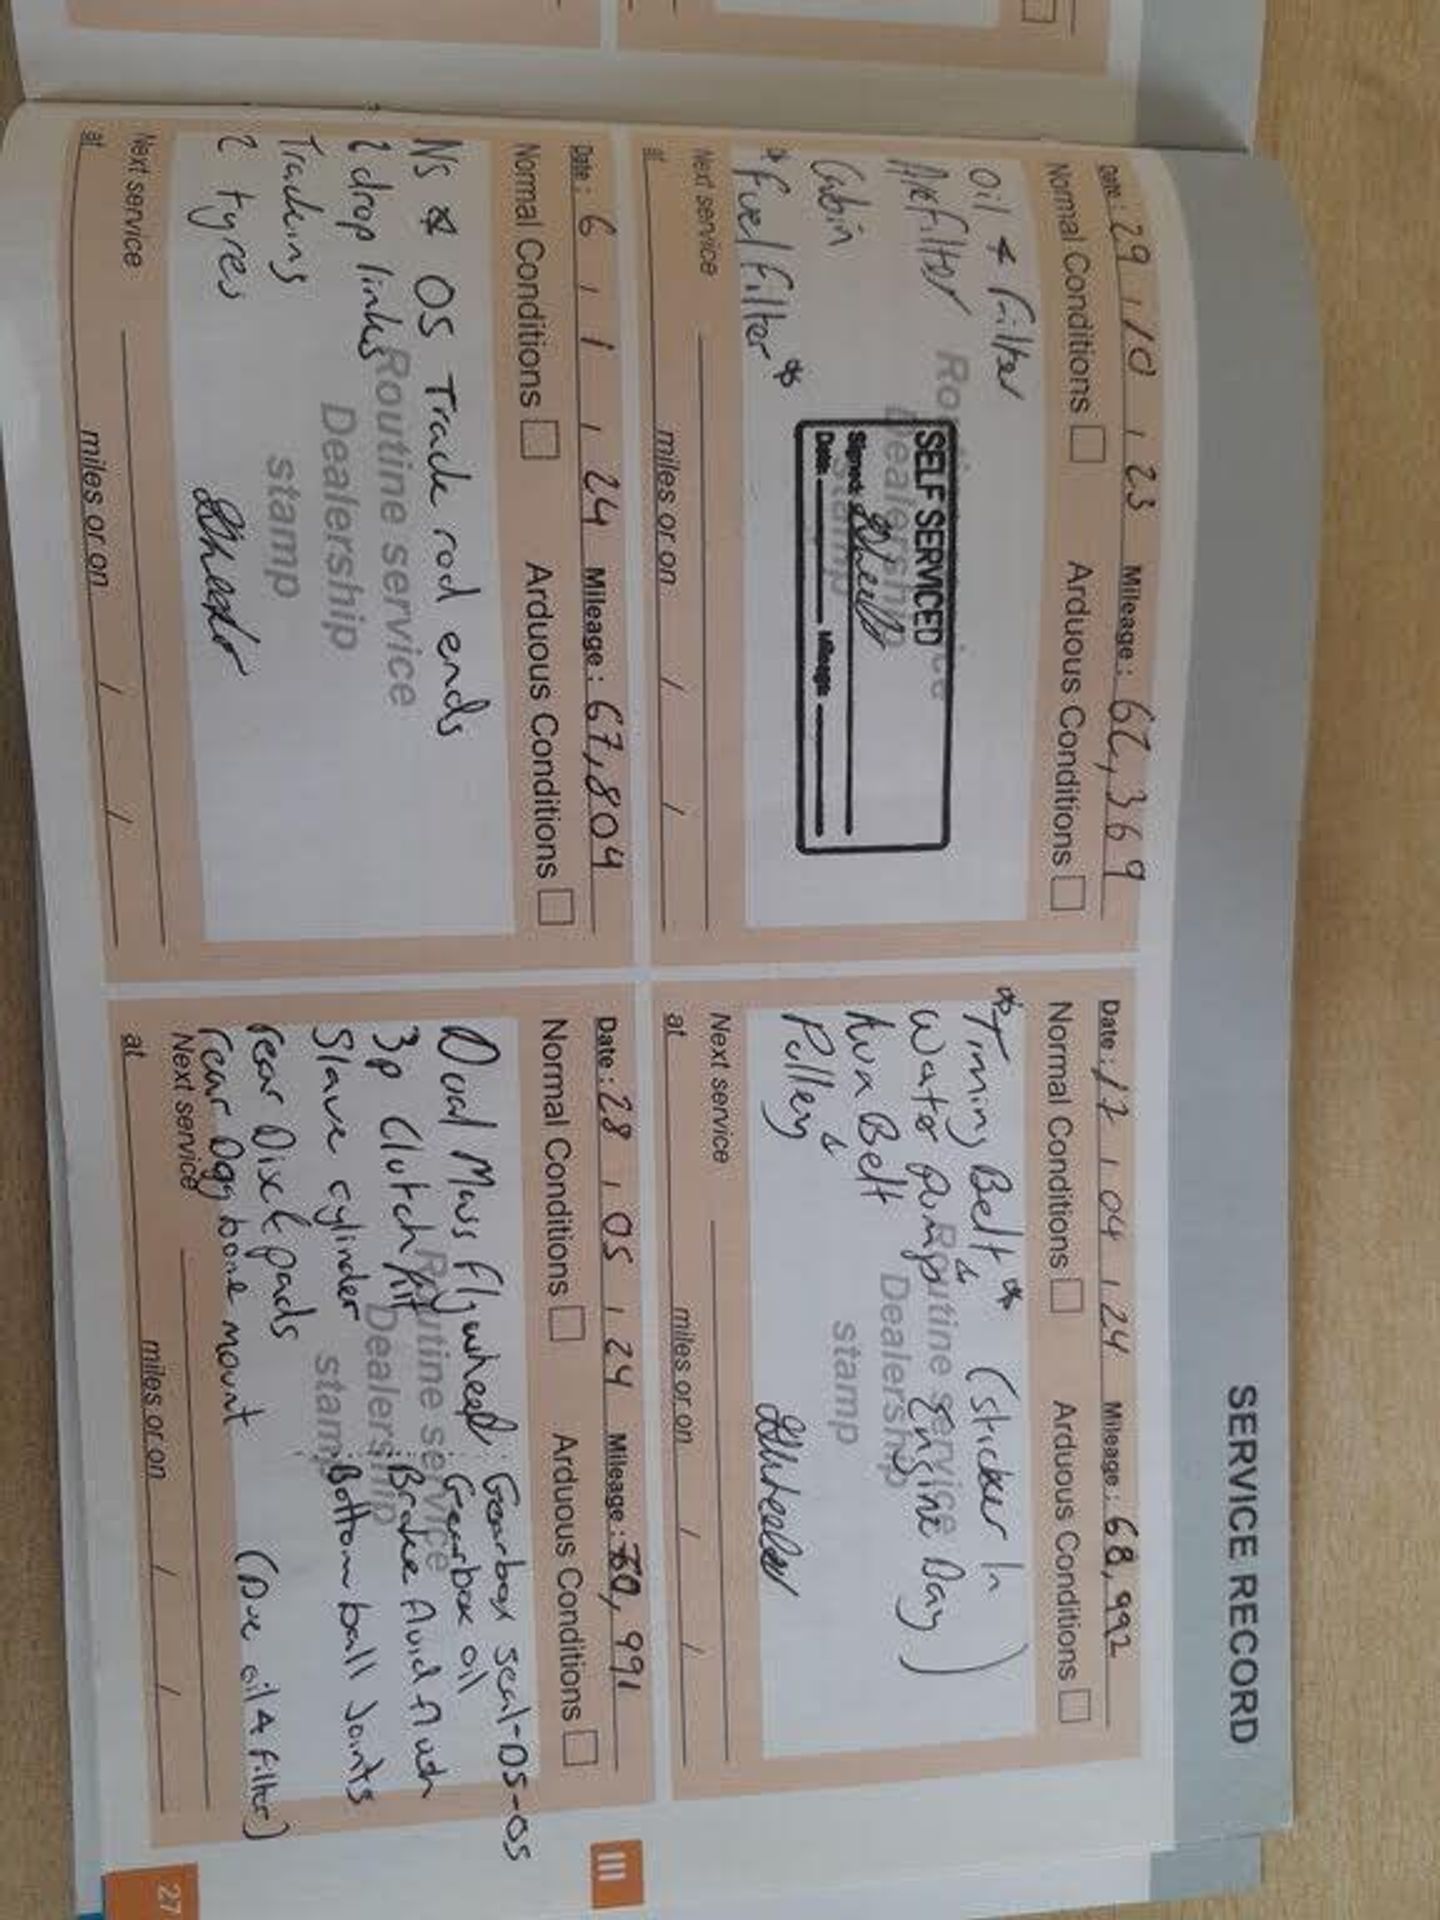 SERVICE RECORD
Date: 29 / 10 / 23 Mileage: 62,369
Normal Conditions Arduous Conditions
Oil & Filter
Air Filter
Cabin
* Fuel Filter *
Routine service
Dealership
stamp
SELF SERVICED
Signed:
Date Mileage
Next service
at miles or on / /
Date: 17 / 04 / 24 Mileage: 68,992
Normal Conditions Arduous Conditions
*Timing Belt* & (Sticker In
Water Pump Engine Bay)
Aux Belt &
Pulley
Routine service
Dealership
stamp
Next service
at miles or on / /
Date: 6 / 1 / 24 Mileage: 67,804
Normal Conditions Arduous Conditions
NS & OS Track rod ends
2 drop links
Tracking
2 tyres
Routine service
Dealership
stamp
Next service
at miles or on / /
Date: 28 / 05 / 24 Mileage: 70,991
Normal Conditions Arduous Conditions
Dual Mass Flywheel : Gearbox seal-DS-OS
3p Clutch Kit : Gearbox oil
Slave cylinder : Brake fluid flush
rear Disc & pads : Bottom ball Joints
rear Dog bone mount (Due oil & filter)
Routine service
Dealership
stamp
Next service
at miles or on / /
III
27